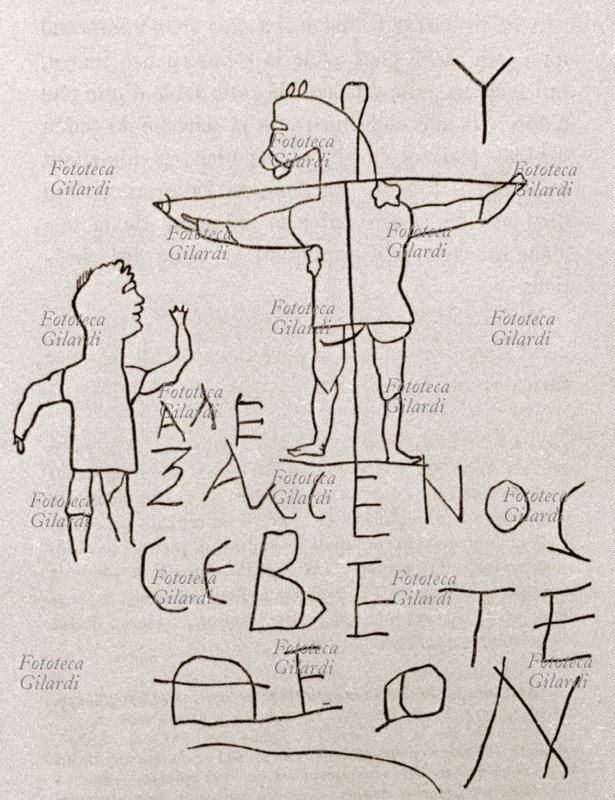 Υ
Fototeca
Gilardi
Fototeca
Gilardi
Fototeca
Gilardi
Fototeca
Gilardi
Fototeca
Gilardi
Fototeca
Gilardi
Fototeca
Gilardi
Fototeca
Gilardi
Fototeca
Gilardi
Fototeca
Gilardi
ΑΛΕ
ΞΑΜΕΝΟϹ
Fototeca
Gilardi
Fototeca
Gilardi
Fototeca
Gilardi
ϹΕΒΕΤΕ
Fototeca
Gilardi
Fototeca
Gilardi
ΘΕΟΝ
Fototeca
Gilardi
Fototeca
Gilardi
Fototeca
Gilardi